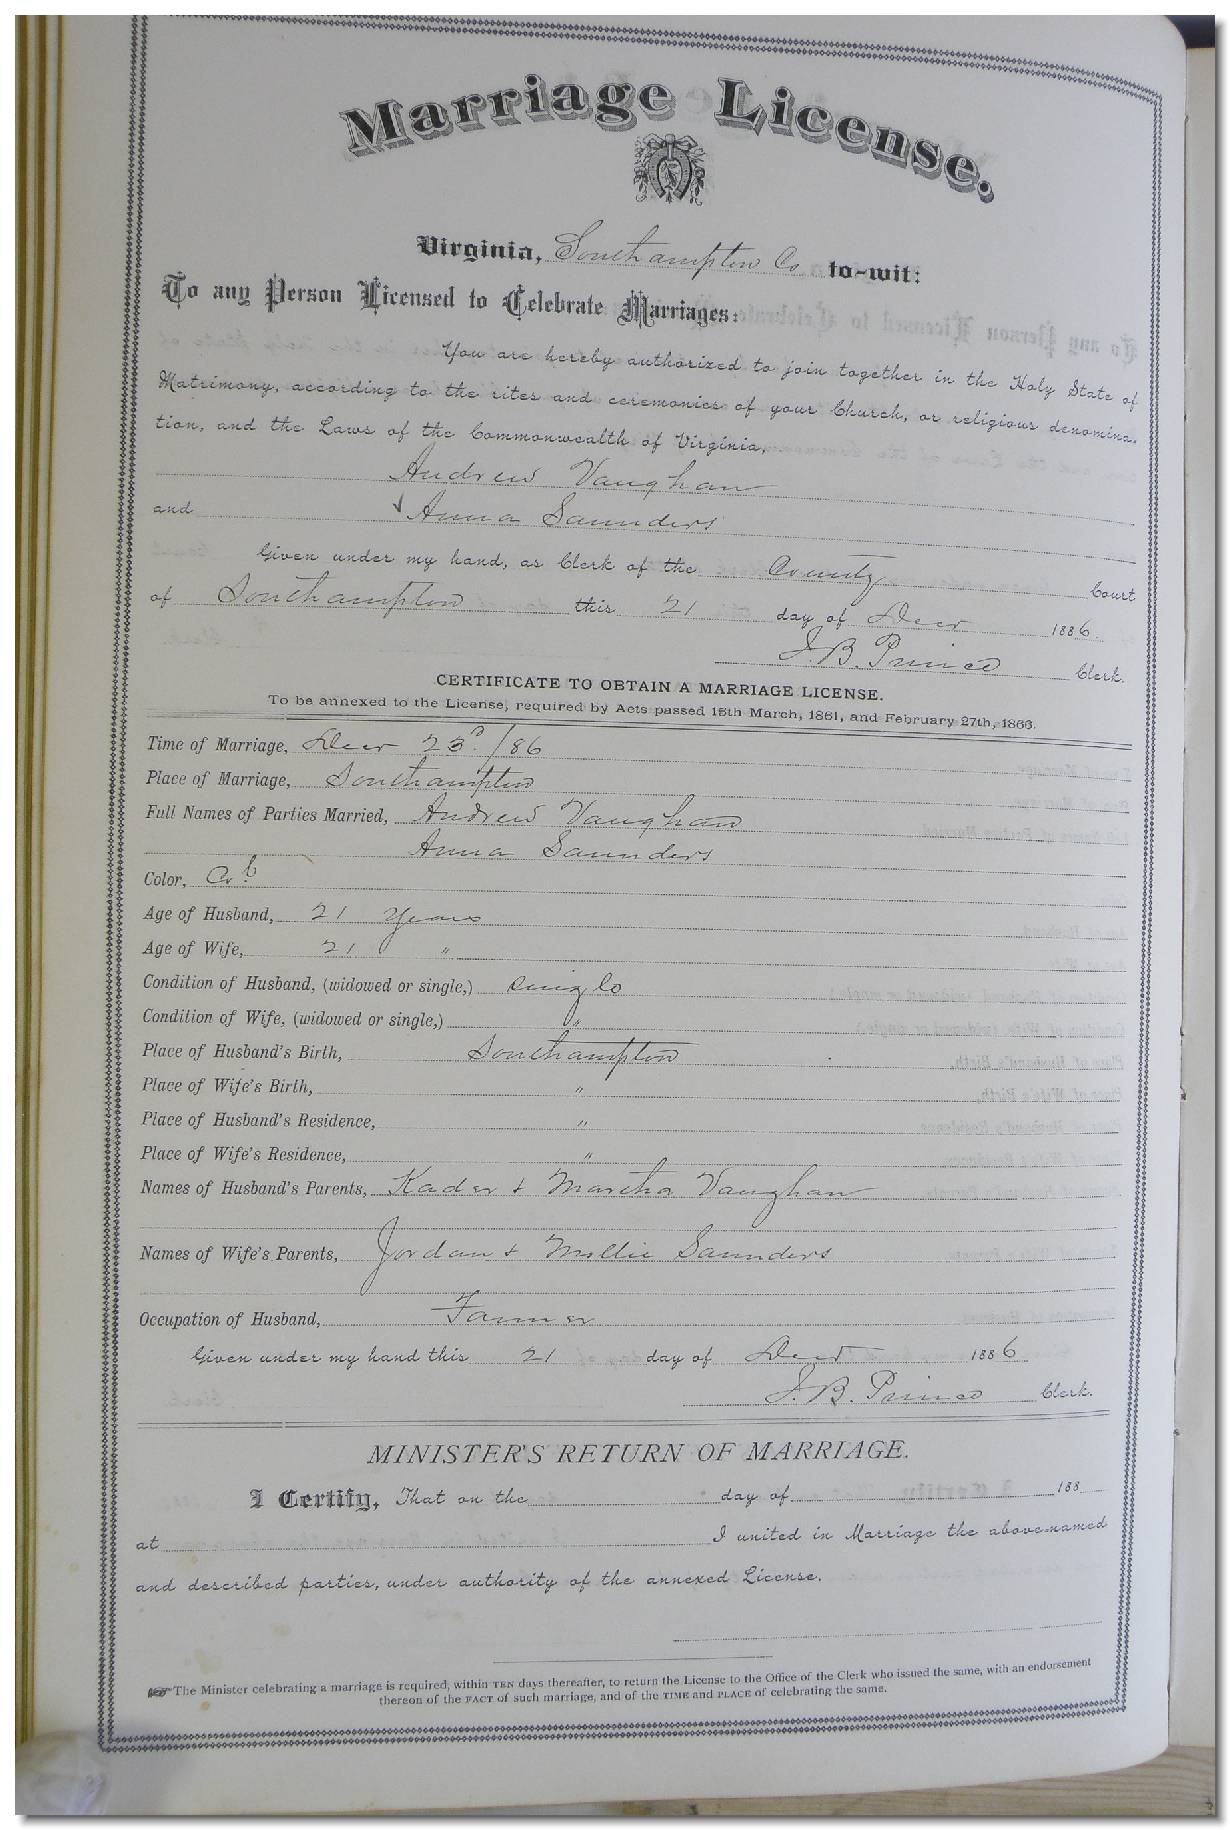 Marriage License.
Virginia, Southampton Co to-wit:
To any Person Licensed to Celebrate Marriages:
You are hereby authorized to join together in the Holy State of
Matrimony, according to the rites and ceremonies of your Church, or religious denomina-
tion, and the Laws of the Commonwealth of Virginia,
Andrew Vaughan
and Anna Saunders
Given under my hand, as Clerk of the County Court
of Southampton this 21 day of Decr 1886.
J. B. Prince Clerk.
CERTIFICATE TO OBTAIN A MARRIAGE LICENSE.
To be annexed to the License, required by Acts passed 15th March, 1861, and February 27th, 1866.
Time of Marriage, Decr 23d/86
Place of Marriage, Southampton
Full Names of Parties Married, Andrew Vaughan
Anna Saunders
Color, Cold
Age of Husband, 21 Years
Age of Wife, 21 "
Condition of Husband, (widowed or single,) Single
Condition of Wife, (widowed or single,) "
Place of Husband's Birth, Southampton
Place of Wife's Birth, "
Place of Husband's Residence, "
Place of Wife's Residence, "
Names of Husband's Parents, Kader & Martha Vaughan
Names of Wife's Parents, Jordan & Millie Saunders
Occupation of Husband, Farmer
Given under my hand this 21 day of Decr 1886
J. B. Prince Clerk.
MINISTER'S RETURN OF MARRIAGE.
I Certify, That on the day of 188
at I united in Marriage the above-named
and described parties, under authority of the annexed License.
The Minister celebrating a marriage is required, within TEN days thereafter, to return the License to the Office of the Clerk who issued the same, with an endorsement
thereon of the FACT of such marriage, and of the TIME and PLACE of celebrating the same.